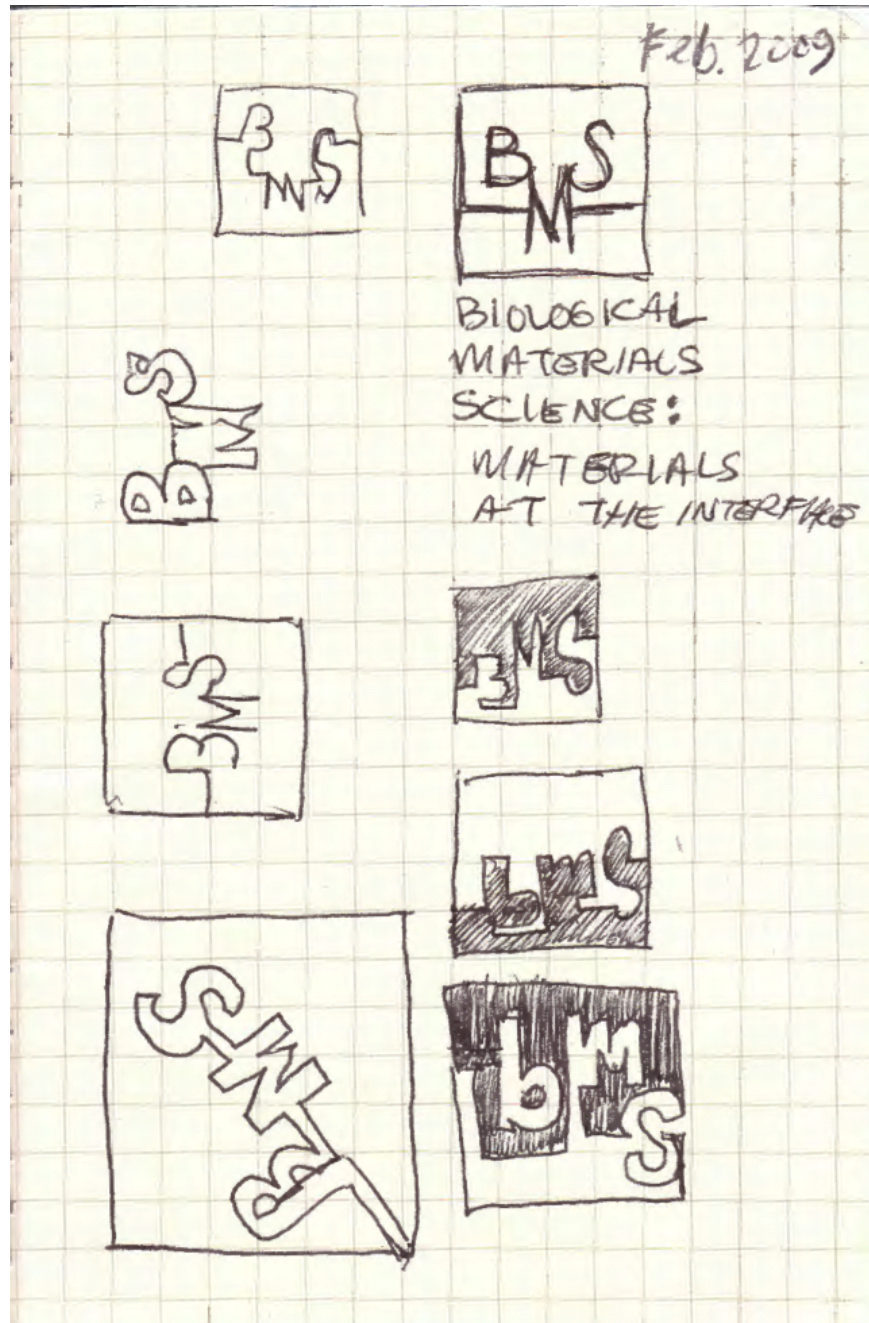 Feb. 2009
BMS
BMS
BIOLOGICAL
MATERIALS
SCIENCE:
MATERIALS
AT THE INTERFACE
BMS
BMS
BMS
bms
BMS
bms